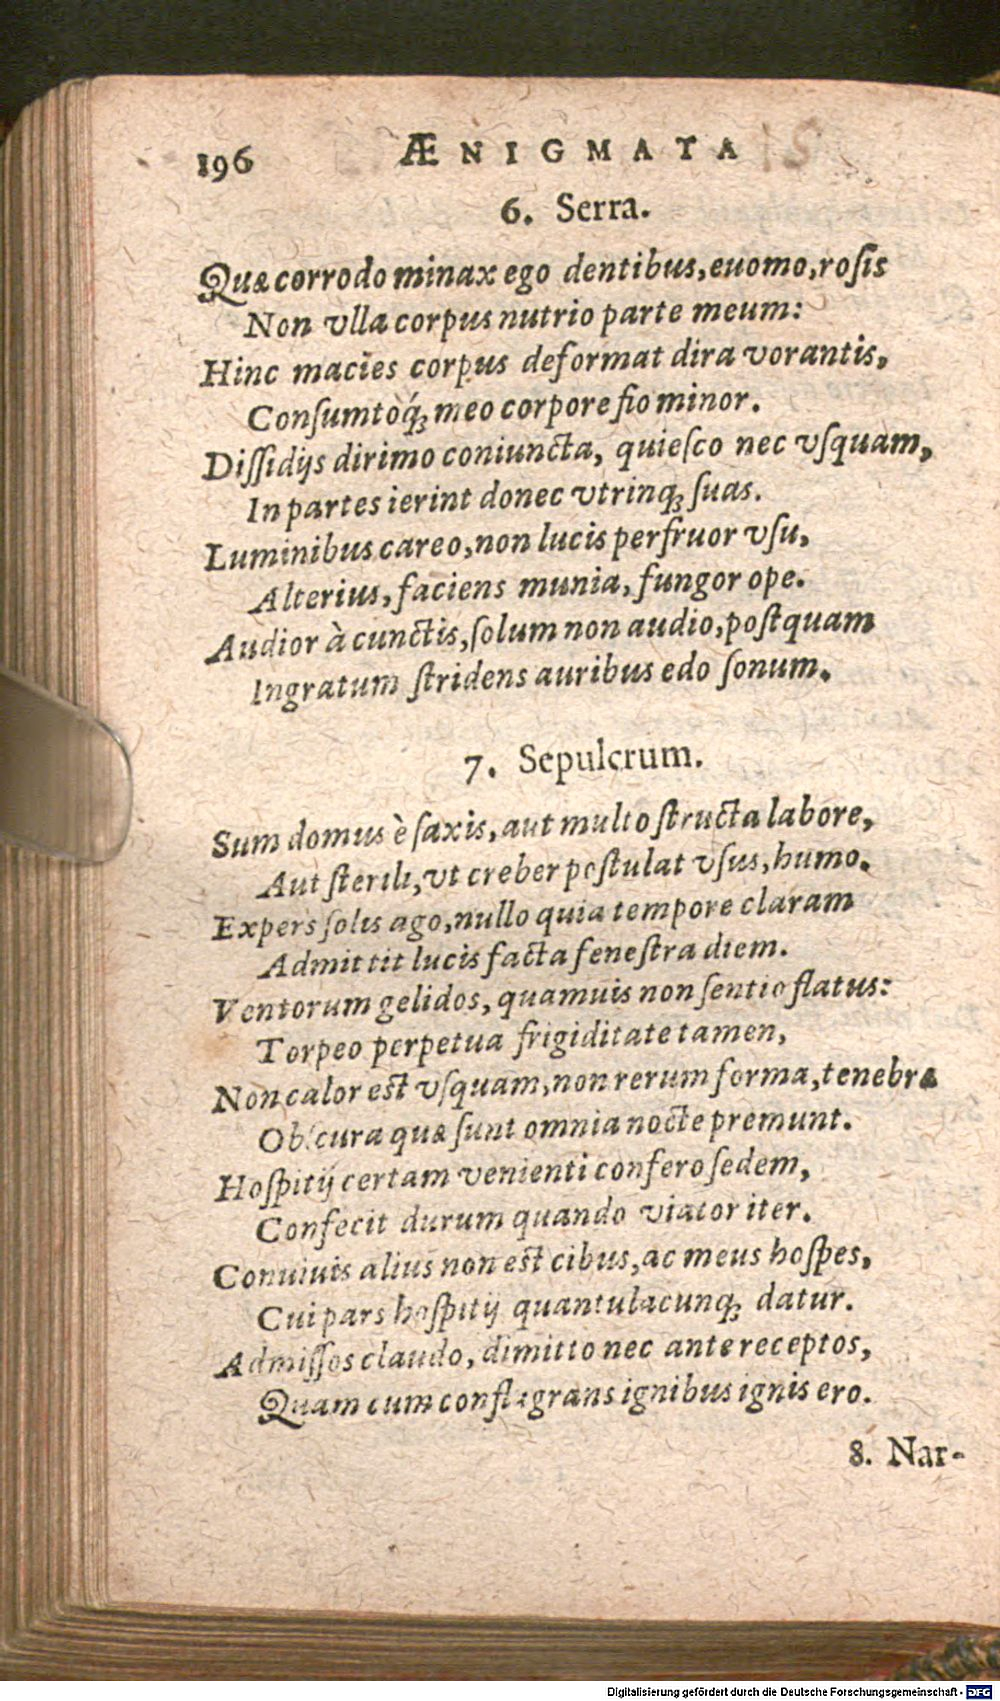 196 ÆNIGMATA
6. Serra.
Quæ corrodo minax ego dentibus, euomo, rosis
Non vlla corpus nutrio parte meum:
Hinc macies corpus deformat dira vorantis,
Consumtoq́ꝫ meo corpore fio minor.
Dissidijs dirimo coniuncta, quiesco nec vsquam,
In partes ierint donec vtrinqꝫ suas.
Luminibus careo, non lucis perfruor vsu,
Alterius, faciens munia, fungor ope.
Audior à cunctis, solum non audio, postquam
Ingratum stridens auribus edo sonum.
7. Sepulcrum.
Sum domus è saxis, aut multo structa labore,
Aut sterili, vt creber postulat vsus, humo.
Expers solis ago, nullo quia tempore claram
Admittit lucis facta fenestra diem.
Ventorum gelidos, quamuis non sentio flatus:
Torpeo perpetua frigiditate tamen,
Non calor est vsquam, non rerum forma, tenebræ
Obscura quæ sunt omnia nocte premunt.
Hospitij certam venienti confero sedem,
Confecit durum quando viator iter.
Conuiuis alius non est cibus, ac meus hospes,
Cui pars hospitij quantulacunqꝫ datur.
Admissos claudo, dimitto nec ante receptos,
Quam cum conflagrans ignibus ignis ero.
8. Nar-
Digitalisierung gefördert durch die Deutsche Forschungsgemeinschaft - DFG